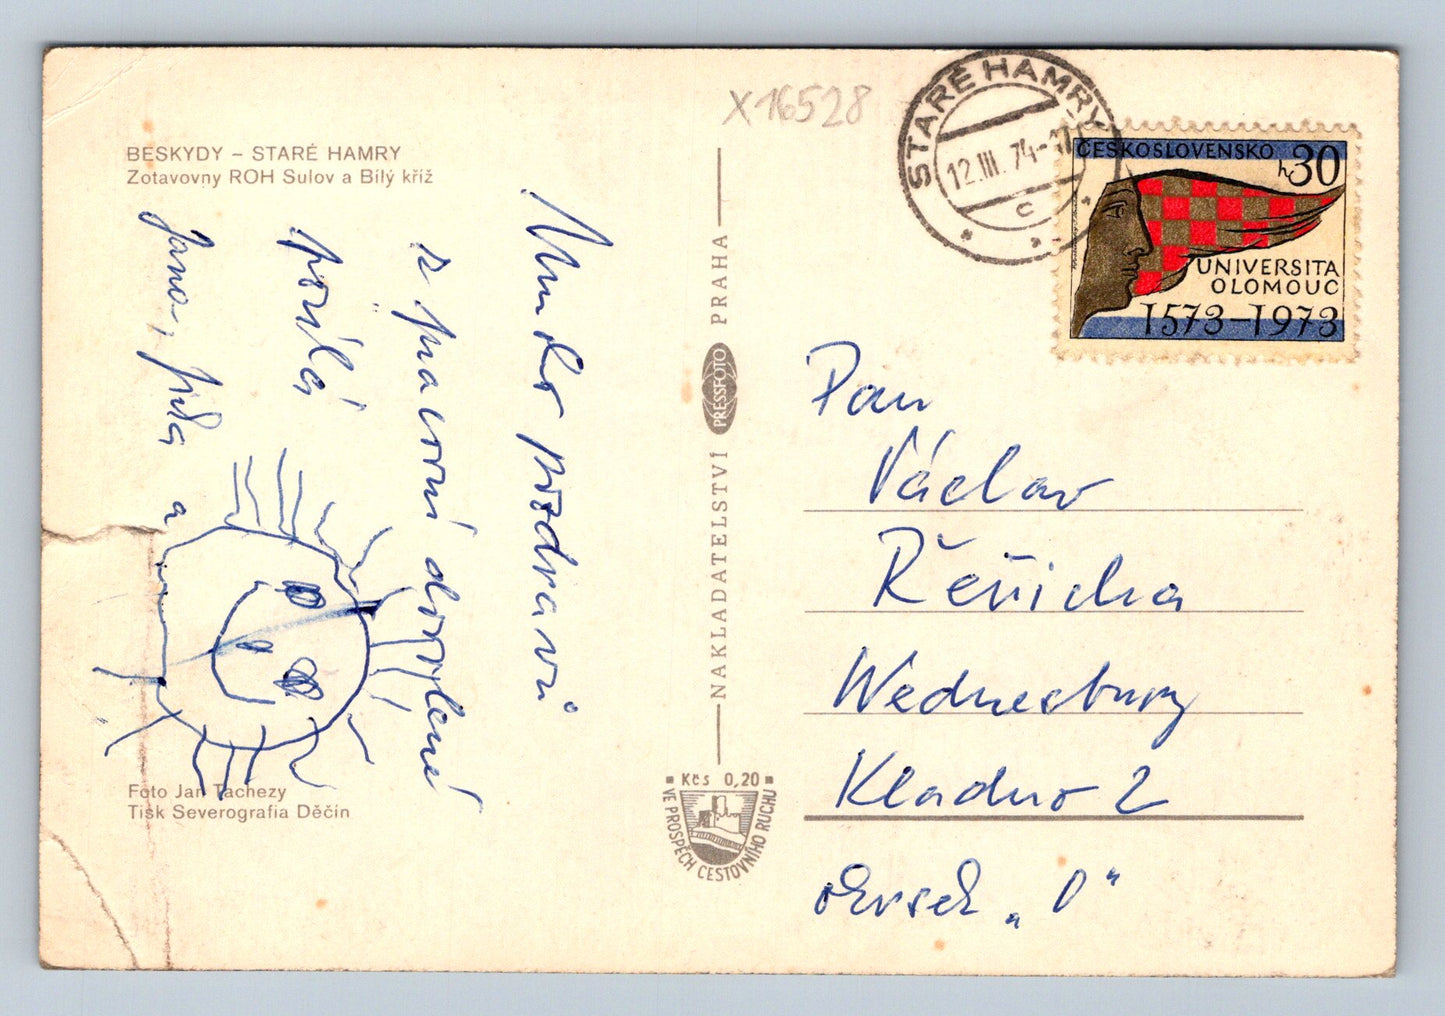 BESKYDY – STARÉ HAMRY
Zotavovny ROH Sulov a Bílý kříž
Mnoho pozdravů
z pracovní dovolené
posílá
Jana,
a
Foto Jan Tachezy
Tisk Severografia Děčín
X16528
NAKLADATELSTVÍ PRESSFOTO PRAHA
Kčs 0,20
VE PROSPĚCH CESTOVNÍHO RUCHU
STARÉ HAMRY
12.III.74-17
c
ČESKOSLOVENSKO
h30
UNIVERSITA
OLOMOUC
1573–1973
Pan
Václav
Řeřicha
Wednesbury
Kladno 2
okrsek „0“